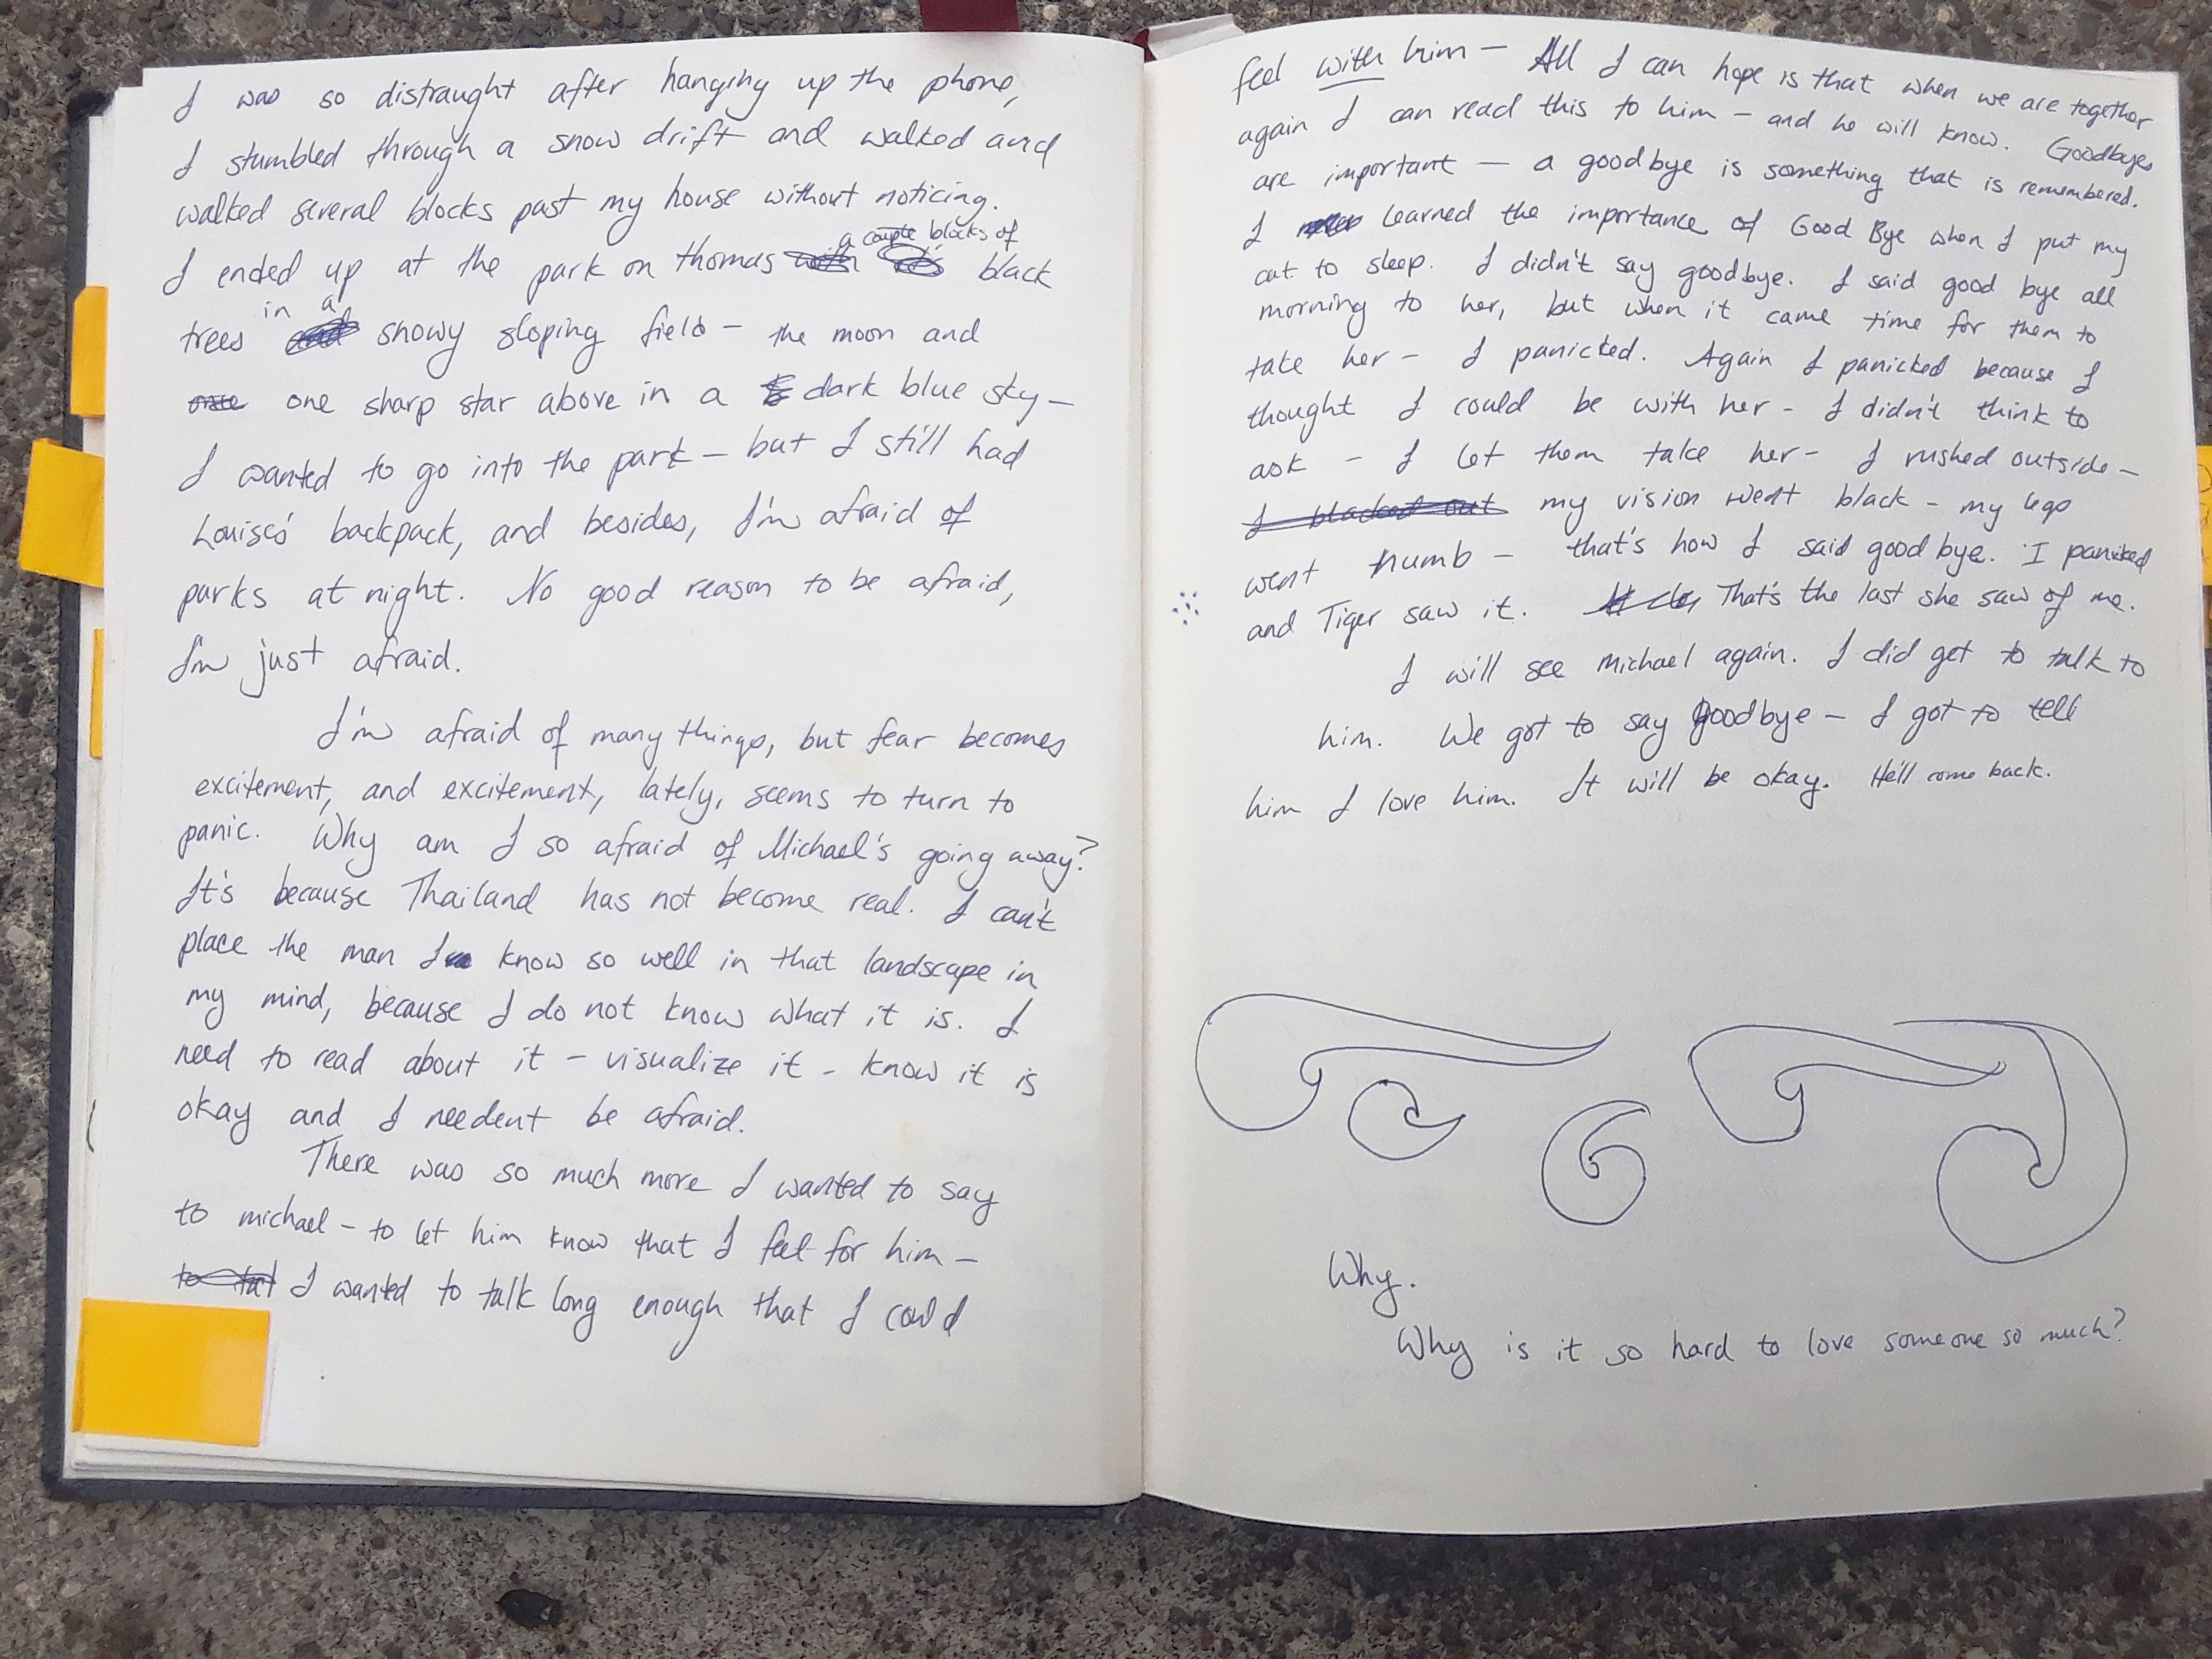 I was so distraught after hanging up the phone,
I stumbled through a snow drift and walked and
walked several blocks past my house without noticing.
a couple blocks of
I ended up at the park on thomas black
in a
trees snowy sloping field – the moon and
one sharp star above in a dark blue sky –
I wanted to go into the park – but I still had
Louise's backpack, and besides, I'm afraid of
parks at night. No good reason to be afraid,
I'm just afraid.
I'm afraid of many things, but fear becomes
excitement, and excitement, lately, seems to turn to
panic. Why am I so afraid of Michael's going away?
It's because Thailand has not become real. I can't
place the man I know so well in that landscape in
my mind, because I do not know what it is. I
need to read about it – visualize it – know it is
okay and I needent be afraid.
There was so much more I wanted to say
to michael – to let him know that I feel for him –
I wanted to talk long enough that I could
feel with him – All I can hope is that when we are together
again I can read this to him – and he will know. Goodbyes
are important – a goodbye is something that is remembered.
I learned the importance of Good Bye when I put my
cat to sleep. I didn't say goodbye. I said good bye all
morning to her, but when it came time for them to
take her – I panicked. Again I panicked because I
thought I could be with her – I didn't think to
ask – I let them take her – I rushed outside –
I blacked out my vision went black – my legs
went numb – that's how I said good bye. I panicked
and Tiger saw it. That's the last she saw of me.
I will see Michael again. I did get to talk to
him. We got to say goodbye – I got to tell
him I love him. It will be okay. He'll come back.
Why.
Why is it so hard to love someone so much?